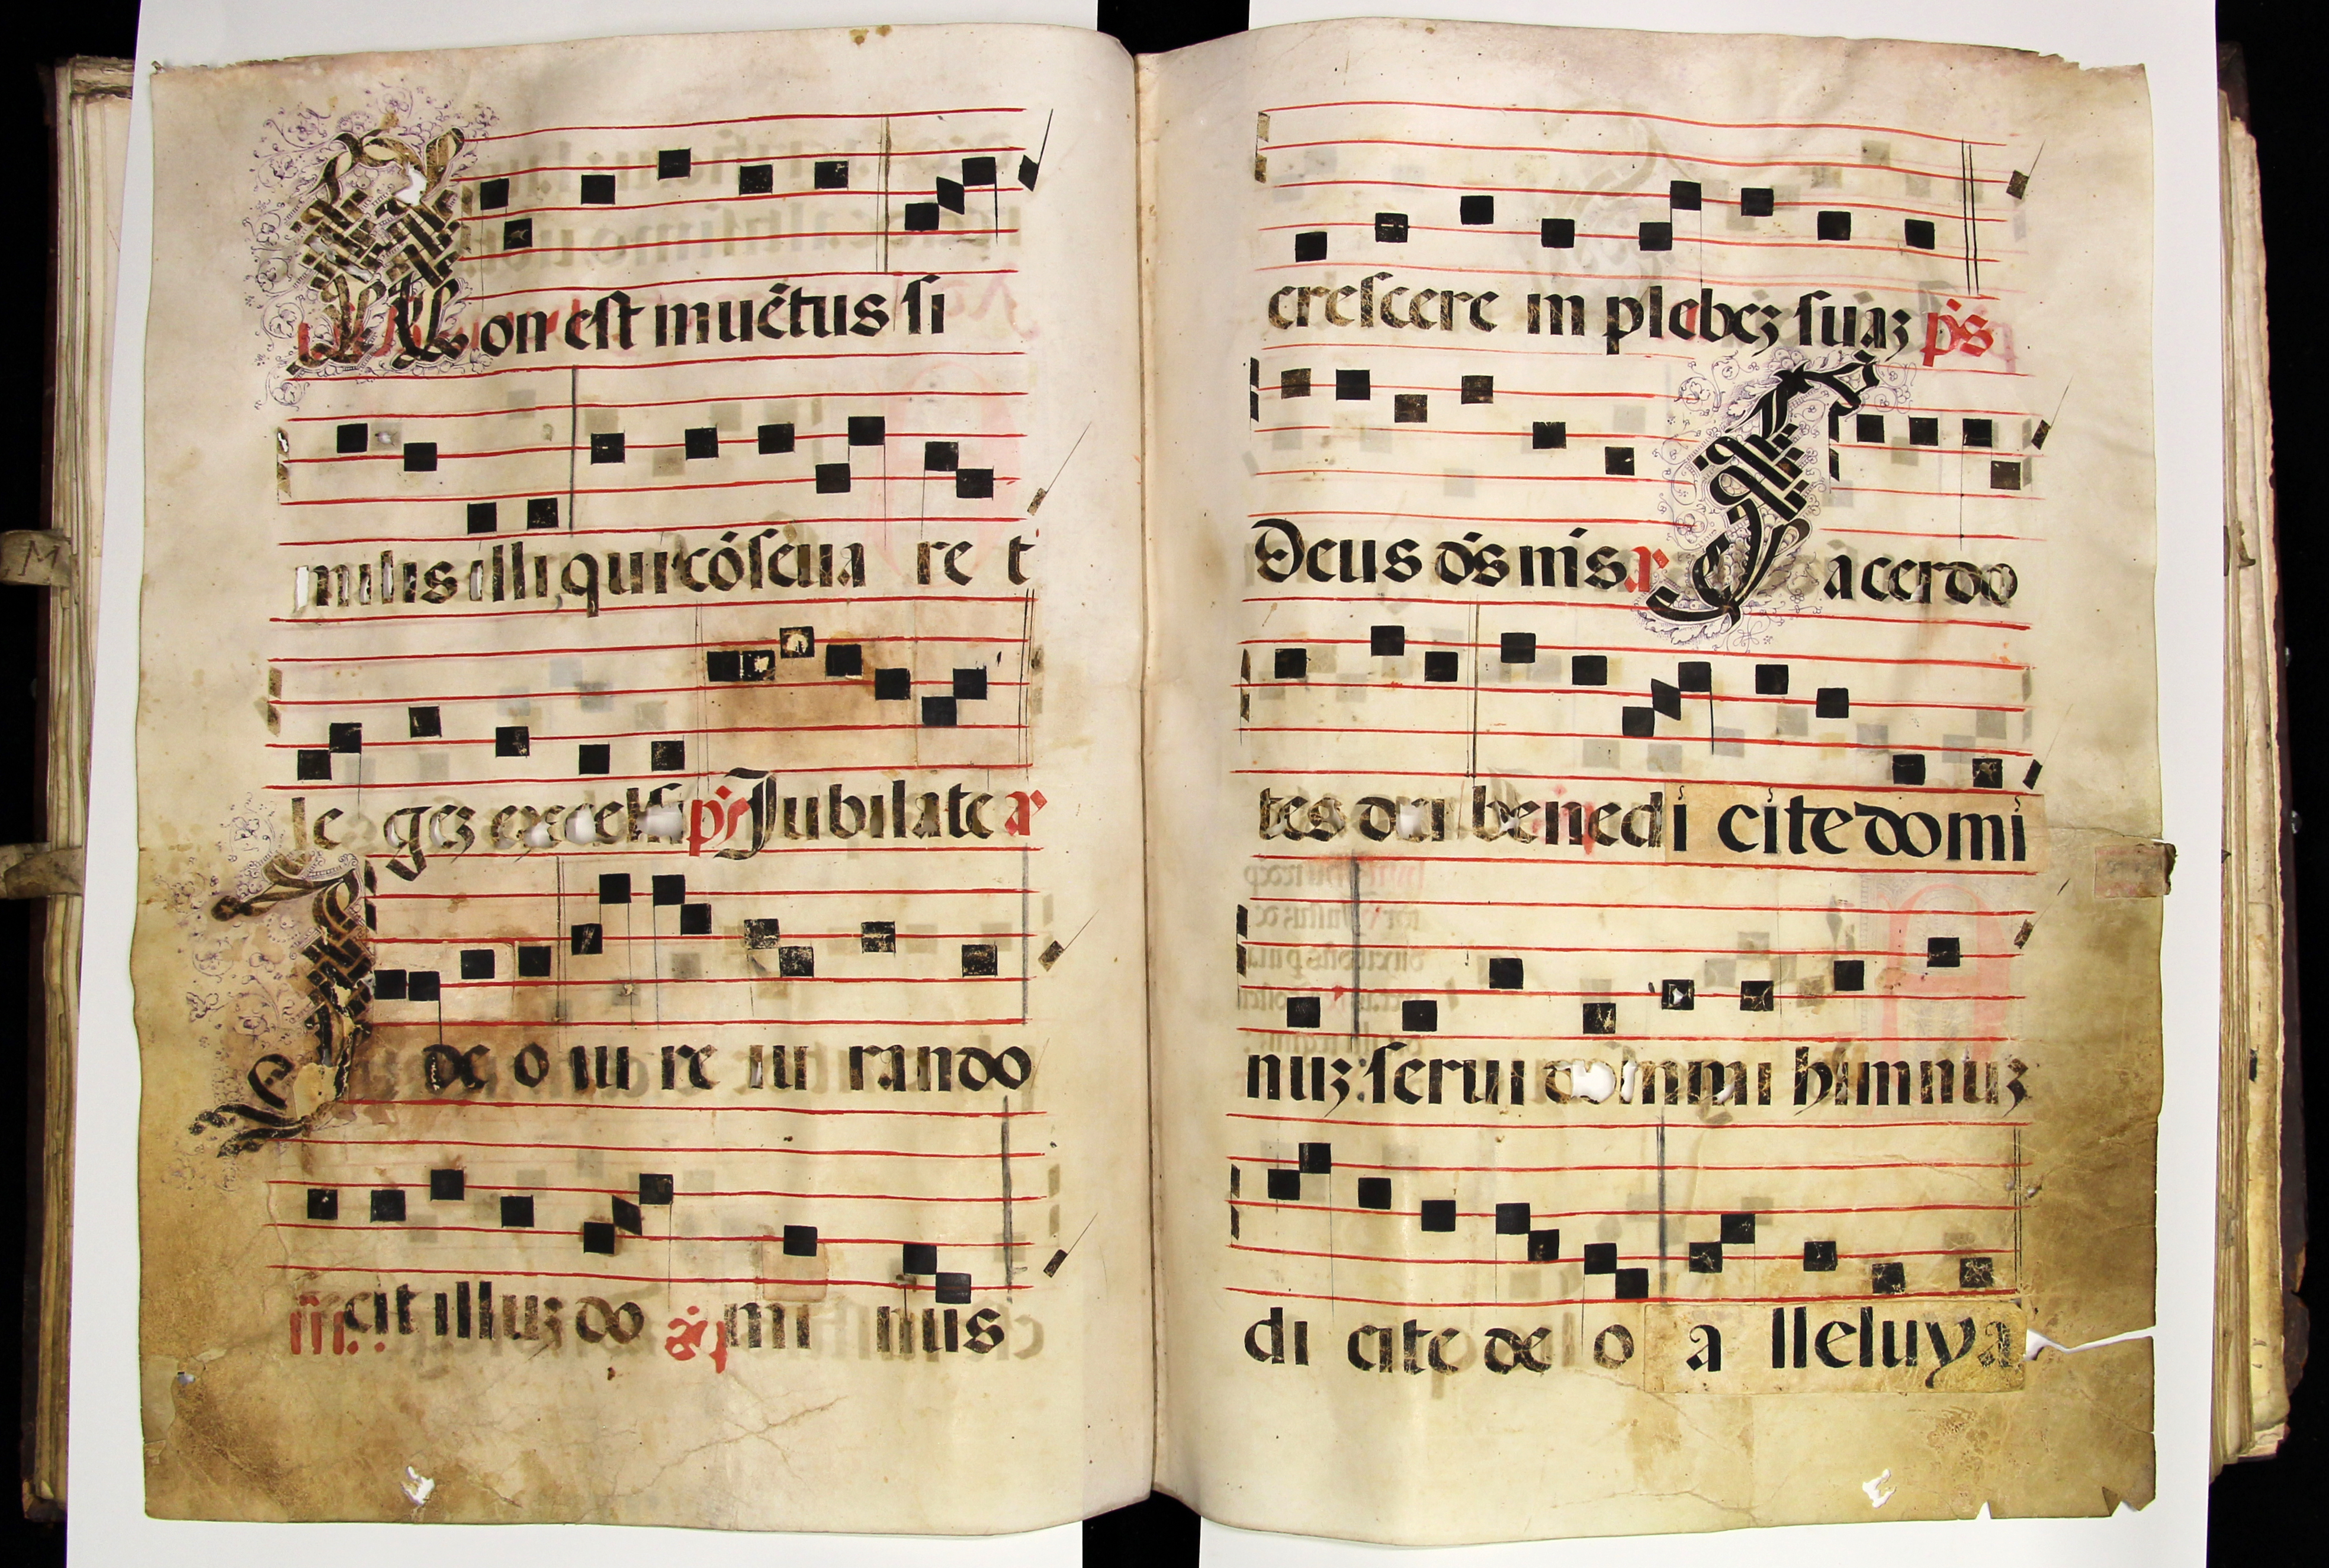 Non est inuẽtus si
milis illi, qui cõserua re t
le gez excelsi ps Jubilate a͞r
I de o iu re iu rando
fe cit illuz do mi nus
crescere in plebez suaz p̄s
Deus d̄s m̄s a͞r Sacerdo
tes dei benedi cite domi
nuz: serui domini himnuz
di cite de o a lleluya
M